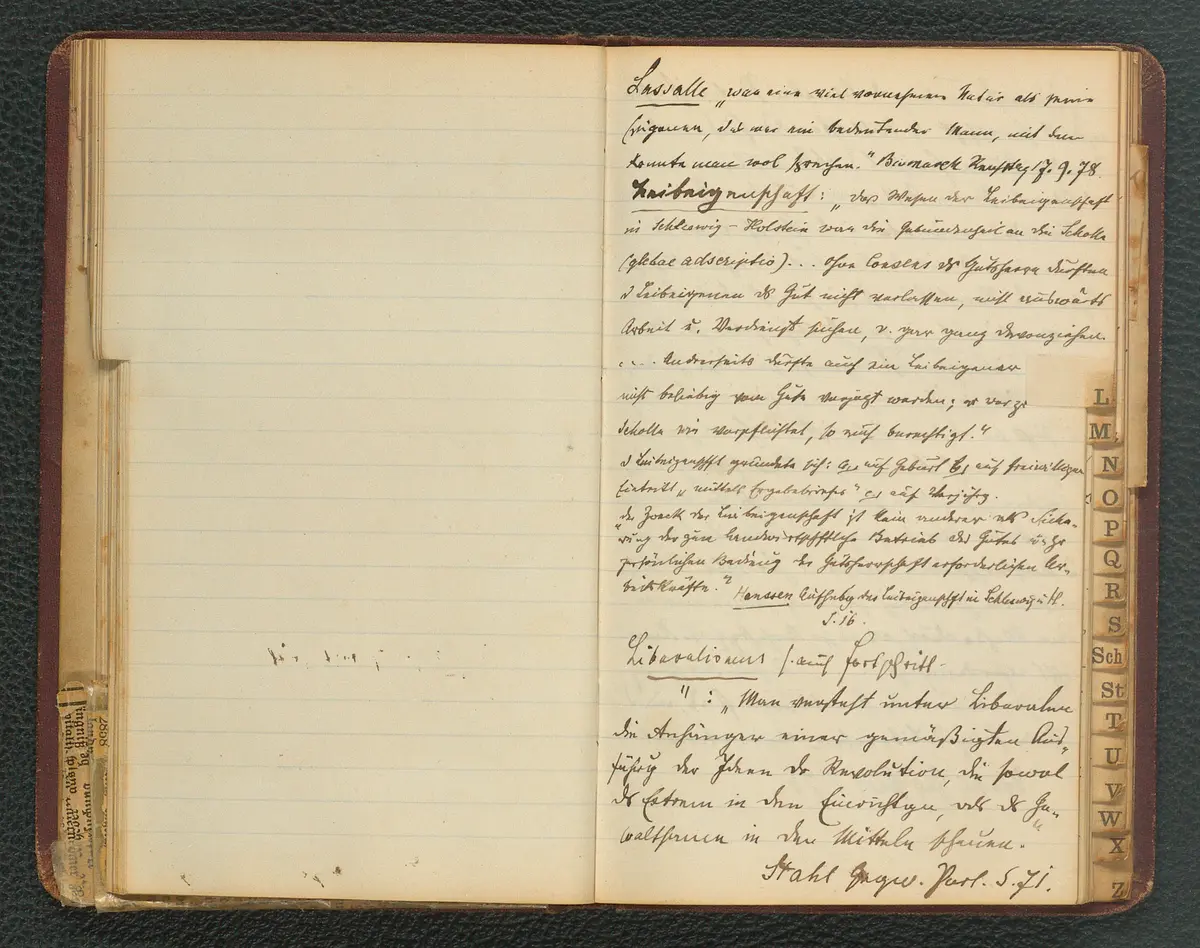 Lassalle „war eine viel vornehmere Natur als seine
Epigonen, das war ein bedeutender Mann, mit dem
konnte man wol sprechen." Bismarck Reichstg 17. 9. 78
Leibeigenschaft: „das Wesen der Leibeigenschaft
in Schleswig-Holstein war die Gebundenheit an die Scholle
(glebae adscriptio)... ohne Consens ds Gutsherrn durften
d Leibeigenen ds Gut nicht verlassen, nicht auswärts
Arbeit u. Verdienst suchen, u. gar ganz davonziehen.
.... Anderseits durfte auch ein Leibeigener
nicht beliebig vom Gute verjagt werden; er war zr
Scholle wie verpflichtet, so auch berechtigt."
d Leibeigenschft gründete sich: a, auf Geburt b, auf freiwilligen
Eintritt „mittels Ergebebriefes" c, auf Verjährg.
„der Zweck der Leibeigenschaft ist kein anderer als Siche-
rung der zum landwirtschftliche Betrieb des Gutes u. zr
persönlichen Bedieng der Gutsherrschaft erforderlichen Ar-
beitskräfte." Hanssen Aufhebg der Leibeigenschft in Schleswig u H.
S. 16.
Liberalismus s. auch Fortschritt.
" : „Man versteht unter Liberalen
die Anhänger einer gemäßigten Aus-
führg der Ideen dr Revolution, die sowol
ds Extrem in den Einrichtgn, als ds Ge-
waltsame in den Mitteln scheuen."
Stahl Gegw. Part. S. 71.
L
M
N
O
P
Q
R
S
Sch
St
T
U
V
W
X
Z